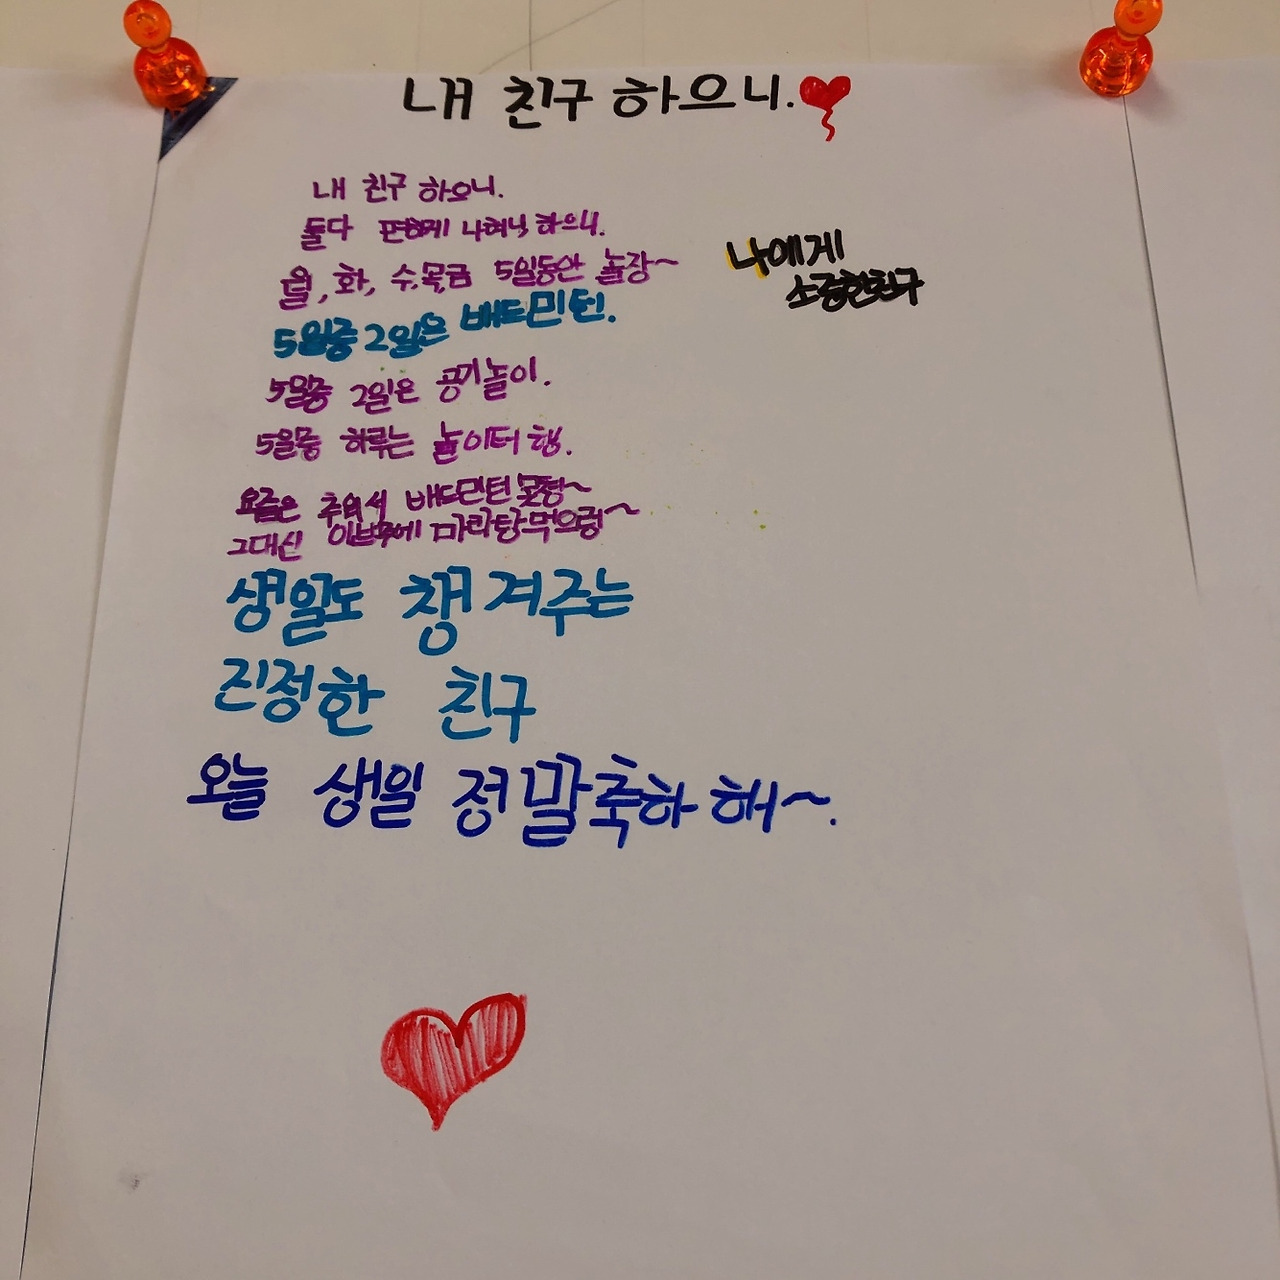 내 친구 하으니.
내 친구 하으니.
둘다 편하게 하으니.
월, 화, 수,목,금 5일동안 놀장~
나에게
소중한친구
5일중 2일은 배드민턴.
5일중 2일은 공기놀이.
5일중 하루는 놀이터 행.
요즘은 추워서 배드민턴 못행~
그대신 이번주에 마라탕먹으렁~
생일도 챙겨주는
진정한 친구
오늘 생일 정말축하 해~.